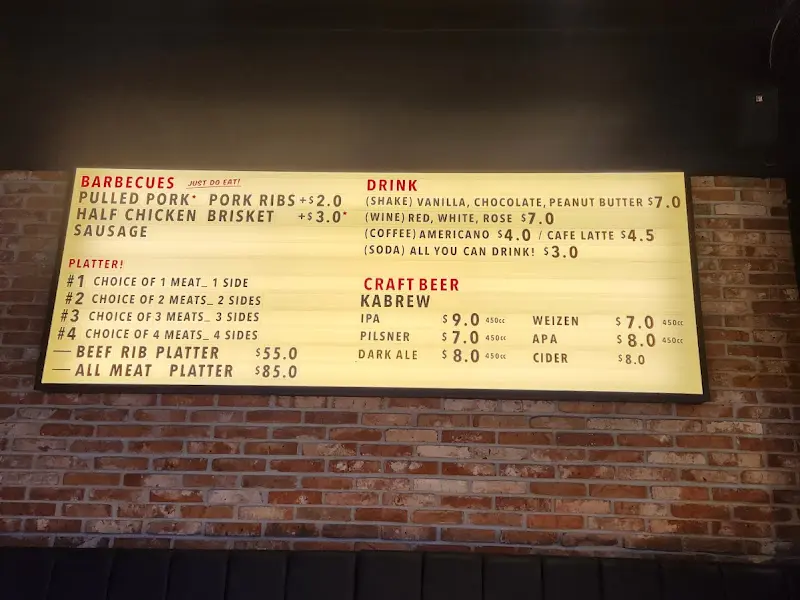 BARBECUES JUST DO EAT!
PULLED PORK* PORK RIBS +$2.0
HALF CHICKEN BRISKET +$3.0*
SAUSAGE
PLATTER!
#1 CHOICE OF 1 MEAT_ 1 SIDE
#2 CHOICE OF 2 MEATS_ 2 SIDES
#3 CHOICE OF 3 MEATS_ 3 SIDES
#4 CHOICE OF 4 MEATS_ 4 SIDES
— BEEF RIB PLATTER $55.0
— ALL MEAT PLATTER $85.0
DRINK
(SHAKE) VANILLA, CHOCOLATE, PEANUT BUTTER $7.0
(WINE) RED, WHITE, ROSE $7.0
(COFFEE) AMERICANO $4.0 / CAFE LATTE $4.5
(SODA) ALL YOU CAN DRINK! $3.0
CRAFT BEER
KABREW
IPA $9.0 450cc WEIZEN $7.0 450cc
PILSNER $7.0 450cc APA $8.0 450cc
DARK ALE $8.0 450cc CIDER $8.0